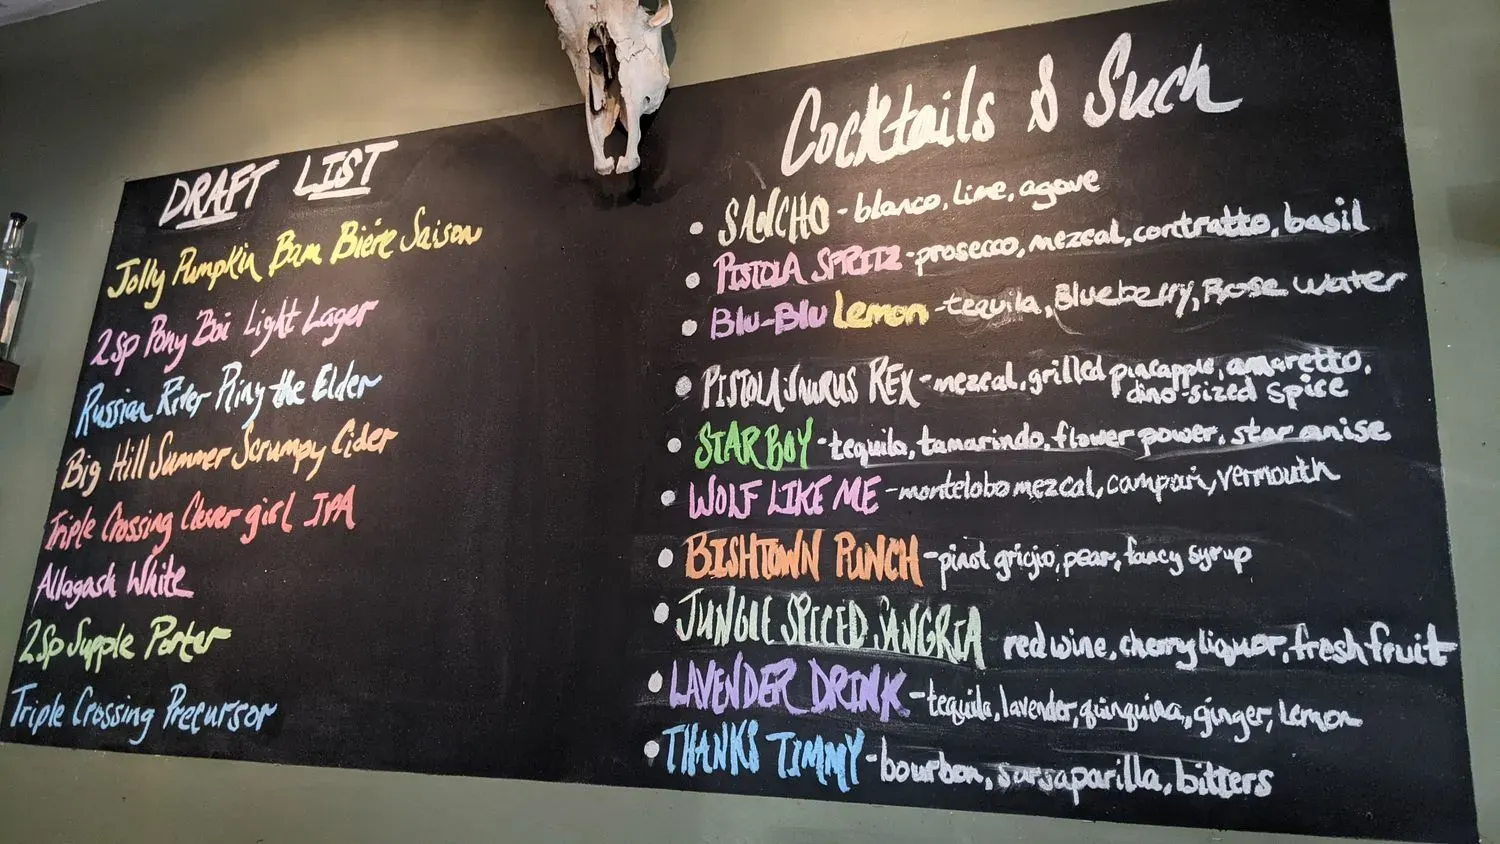 DRAFT LIST
Jolly Pumpkin Bam Biere Saison
2SP Pony Boi Light Lager
Russian River Pliny the Elder
Big Hill Summer Scrumpy Cider
Triple Crossing Clever girl IPA
Allagash White
2SP Supple Porter
Triple Crossing Precursor
Cocktails & Such
SANCHO - blanco, lime, agave
PISTOLA SPRITZ - prosecco, mezcal, contratto, basil
BLU-BLU Lemon - tequila, Blueberry, Rose water
PISTOLASAURUS REX - mezcal, grilled pineapple, amaretto,
dino-sized spice
STAR BOY - tequila, tamarindo, flower power, star anise
WOLF LIKE ME - montelobo mezcal, campari, vermouth
BISHTOWN PUNCH - pinot grigio, pear, fancy syrup
JUNGLE SPICED SANGRIA red wine, cherry liquor, fresh fruit
LAVENDER DRINK - tequila, lavender, quinquina, ginger, lemon
THANKS TIMMY - bourbon, sarsaparilla, bitters